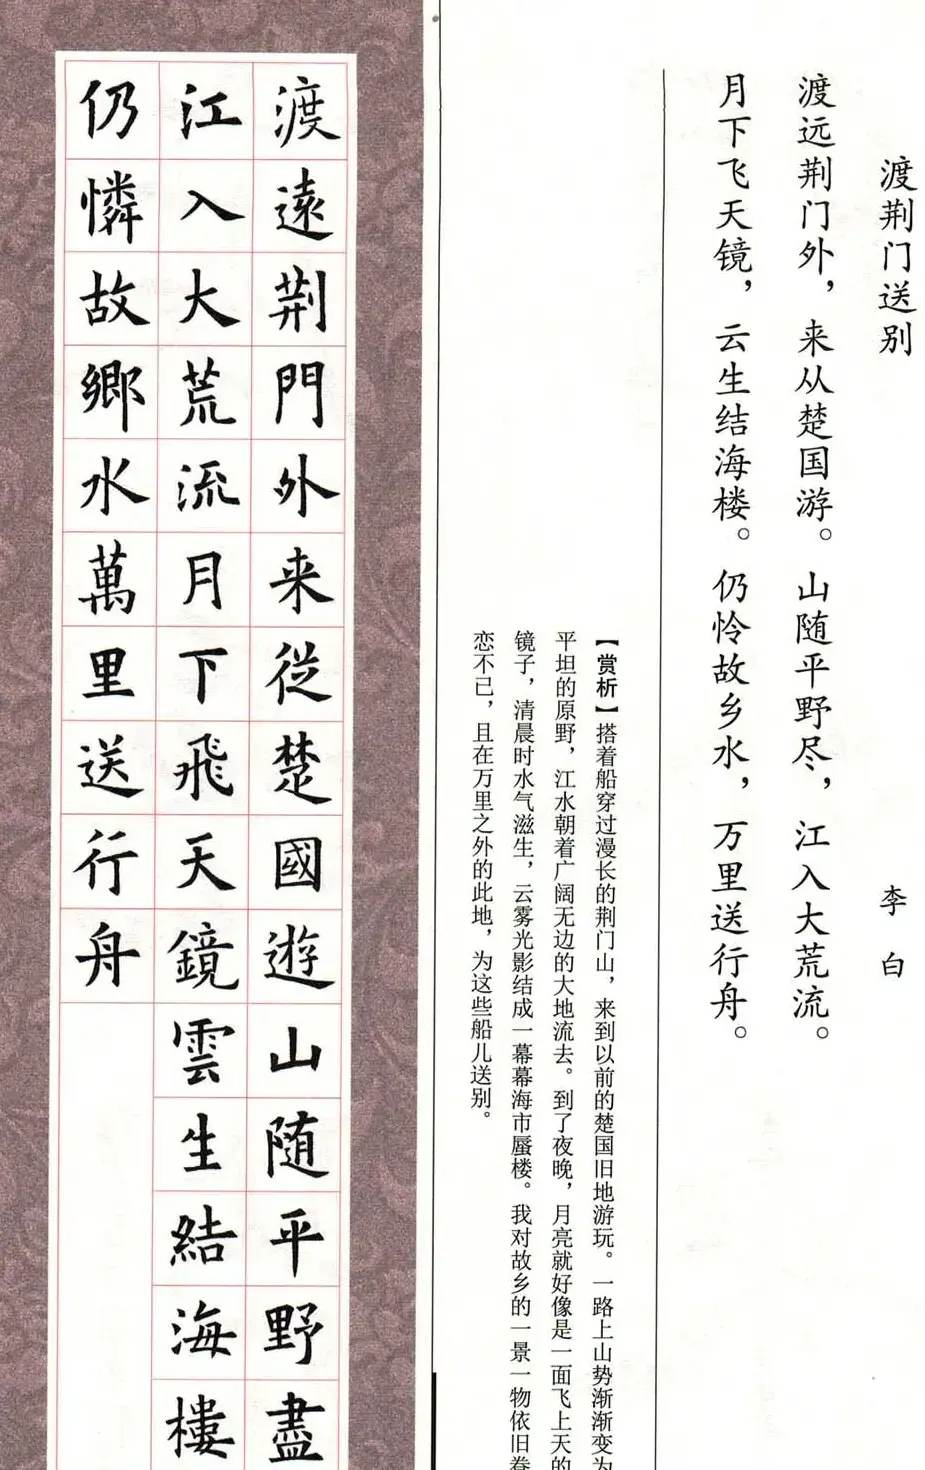 渡荆门送别
李白
渡远荆门外，来从楚国游。山随平野尽，江入大荒流。
月下飞天镜，云生结海楼。仍怜故乡水，万里送行舟。
【赏析】搭着船穿过漫长的荆门山，来到以前的楚国旧地游玩。一路上山势渐渐变为
平坦的原野，江水朝着广阔无边的大地流去。到了夜晚，月亮就好像是一面飞上天的
镜子，清晨时水气滋生，云雾光影结成一幕幕海市蜃楼。我对故乡的一景一物依旧眷
恋不已，且在万里之外的此地，为这些船儿送别。
渡遠荆門外来從楚國遊山随平野盡
江入大荒流月下飛天鏡雲生結海樓
仍憐故鄉水萬里送行舟